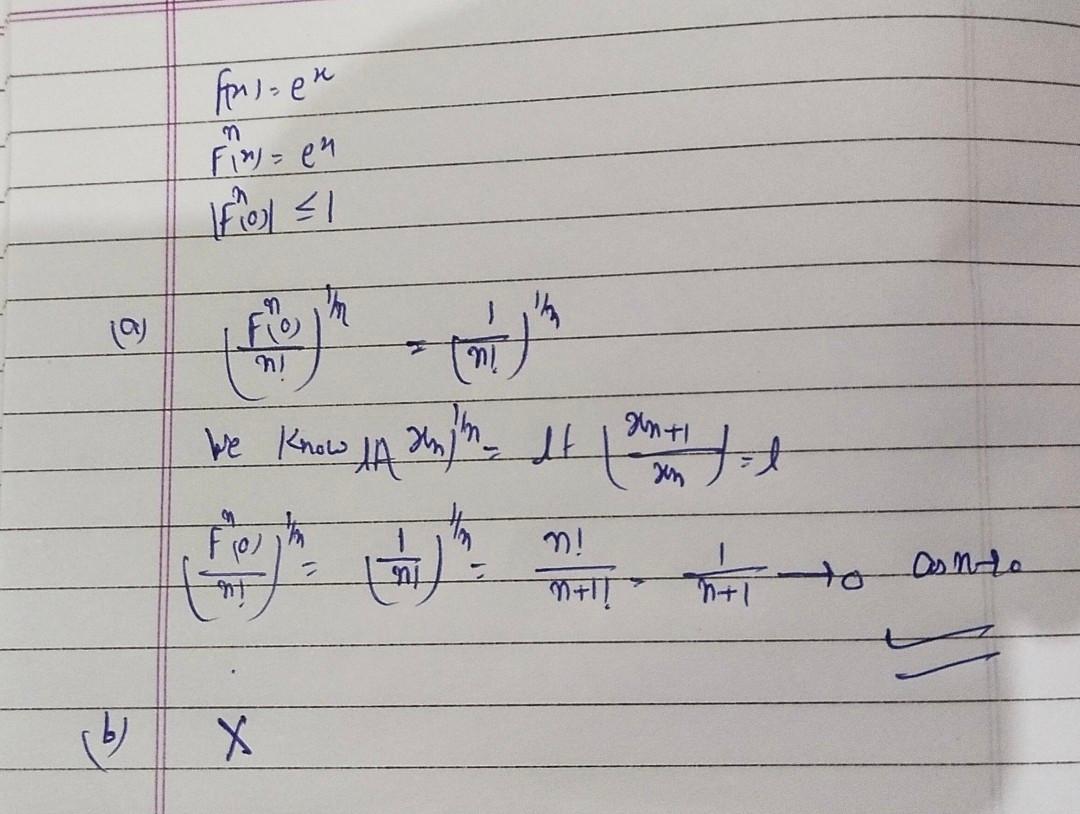 f(x) = e^x
F^n(x) = e^x
|F^n(0)| ≤ 1
(a) (F^n(0)/n!)^{1/n} = (1/n!)^{1/n}
We Know lt x_n)^{1/n} = lt (x_{n+1}/x_n) = l
(F^n(0)/n!)^{1/n} = (1/n!)^{1/n} = n!/n+1! = 1/n+1 → 0 as n→∞
(b) X